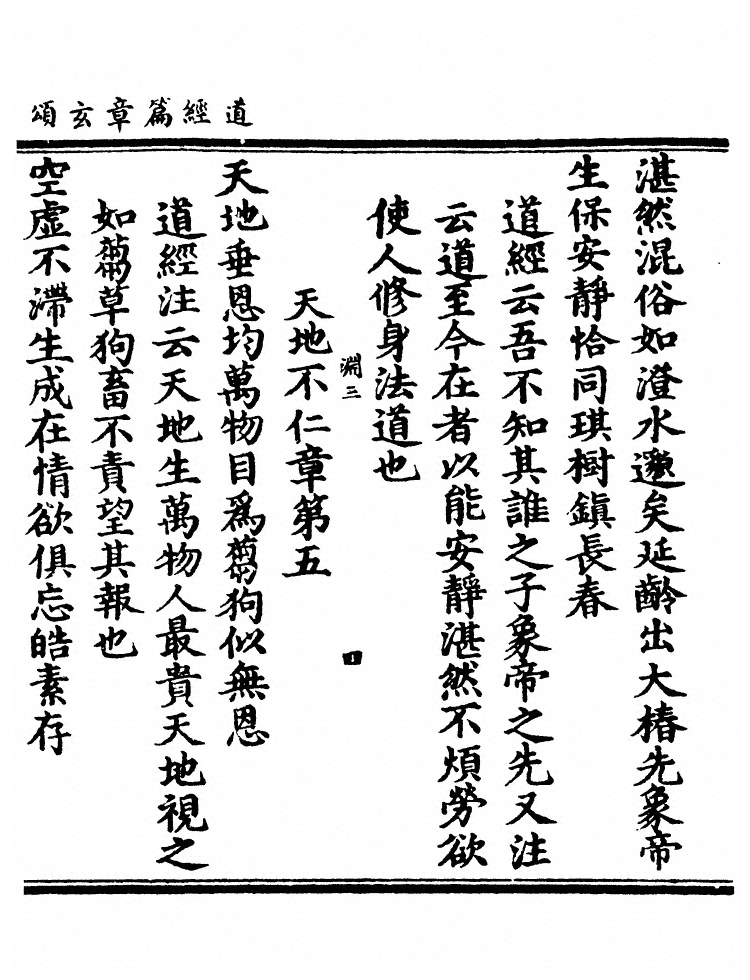 道經篇章玄頌
湛然混俗如澄水邈矣延齡出大椿先象帝
生保安靜恰同琪樹鎮長春
道經云吾不知其誰之子象帝之先又注
云道至今在者以能安靜湛然不煩勞欲
使人修身法道也
淵三
四
天地不仁章第五
天地垂恩均萬物目爲蒭狗似無恩
道經注云天地生萬物人最貴天地視之
如蒭草狗畜不責望其報也
空虛不滯生成在情欲俱忘皓素存